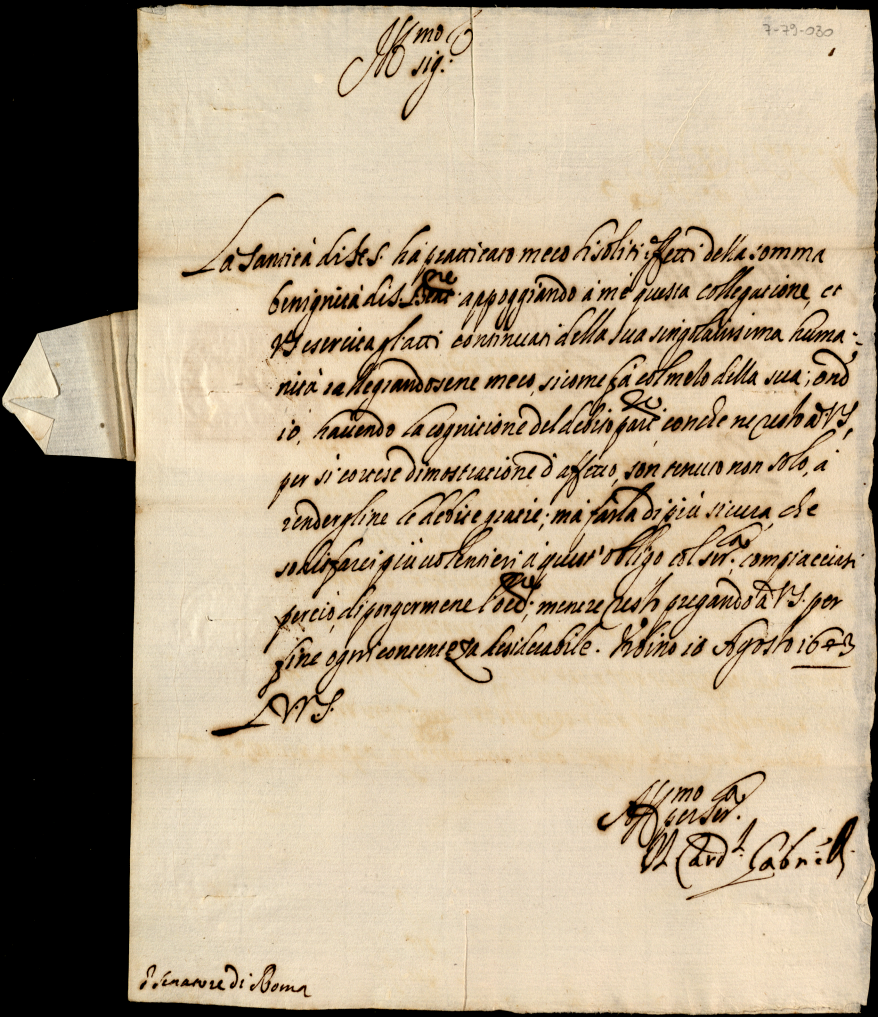 7-79-030
Ill.mo
sig.r
La Santità di N.S. ha pratticato meco li soliti effetti della somma
benignità di S. Beat.ne appoggiando à me questa collegatione, et
VS esercita gl'atti continuati della sua singolarissima huma-
nità rallegrandosene meco, si come fà col melo della sua; ond'
io, havendo la cognitione del debito conche ne resto à VS,
per si cortese dimostratione d'affetto, son tenuto non solo, à
rendergline le debite gratie; mà farla di più sicura, che
sodisfarei più volentieri à quest'obligo col ser.la, compiacciasi
perciò, di porgermene l'occ.ne; mentre resto pregando à VS. per
fine ogni contentezza desiderabile. Urbino 10 Agosto 1643
D.V.S.
Aff.mo per ser.la
Il Card.l Gabrielli
S. Senatore di Roma